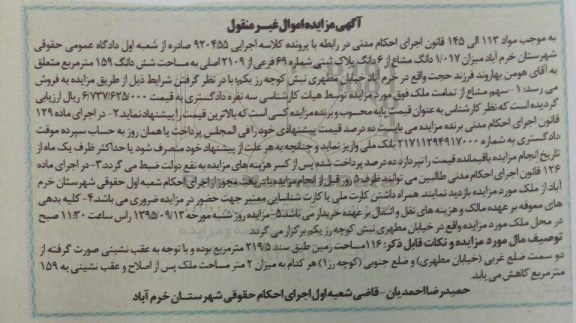 آگهی مزایده اموال غیر منقول
به موجب مواد ۱۱۳ الی ۱۴۵ قانون اجرای احکام مدنی در رابطه با پرونده کلاسه اجرایی ۹۲۰۴۵۵ صادره از شعبه اول دادگاه عمومی حقوقی
شهرستان خرم آباد میزان ۱/۰۱۷ دانگ مشاع از ۶ دانگ پلاک ثبتی شماره ۶۹ فرعی از ۲۱۰۹ اصلی به مساحت شش دانگ ۱۵۹ مترمربع متعلق
به آقای هومن بهاروند فرزند حجت واقع در خرم آباد خیابان مطهری نبش کوچه رز یکم با در نظر گرفتن شرایط ذیل از طریق مزایده به فروش
می رسد: ۱- سهم مشاع از تمامت ملک فوق مورد مزایده توسط هیات کارشناسی سه نفره دادگستری به قیمت ۶/۷۳۷/۶۲۵/۰۰۰ ریال ارزیابی
گردیده است که نظر کارشناس به عنوان قیمت پایه محسوب و برنده مزایده کسی است که بالاترین قیمت را پیشنهاد نماید ۲- در اجرای ماده ۱۲۹
قانون اجرای احکام مدنی برنده مزایده می بایست ده درصد قیمت پیشنهادی خود را فی المجلس پرداخت یا همان روز به حساب سپرده موقت
دادگستری به شماره ۲۱۷۱۱۲۹۴۹۱۷۰۰۰ بانک ملی واریز نماید و چنانچه به هر علت از پیشنهاد خود منصرف شود یا حداکثر ظرف یک ماه از
تاریخ انجام مزایده باقیمانده قیمت را نپردازد ده درصد پرداخت شده پس از کسر هزینه های مزایده به نفع دولت ضبط می گردد ۳- در اجرای ماده
۱۲۶ قانون اجرای احکام مدنی طالبین می توانند ظرف ۵ روز قبل از انجام مزایده با دریافت مجوز از اجرای احکام شعبه اول حقوقی شهرستان خرم
آباد از ملک مورد مزایده بازدید نمایند. همراه داشتن کارت ملی یا کارت شناسایی معتبر جهت حضور در مزایده ضروری می باشد ۴- کلیه بدهی
های معوقه بر عهده مالک و هزینه های نقل و انتقال بر عهده خریدار می باشد ۵- مزایده روز شنبه مورخه ۱۳۹۵/۰۹/۱۳ راس ساعت ۱۱:۳۰ صبح
در محل ملک مورد مزایده واقع در خیابان مطهری نبش کوچه رز یکم برگزار می گردد.
توصیف مال مورد مزایده و نکات قابل ذکر: ۱۱۶ مساحت زمین طبق سند ۲۱۹/۵ مترمربع بوده و با توجه به عقب نشینی صورت گرفته از
دو سمت ضلع غربی (خیابان مطهری) و ضلع جنوبی (کوچه رز۱) هر کدام به میزان ۲ متر مساحت ملک پس از اصلاح و عقب نشینی به ۱۵۹
مترمربع کاهش می یابد.
حمیدرضا احمدیان - قاضی شعبه اول اجرای احکام حقوقی شهرستان خرم آباد